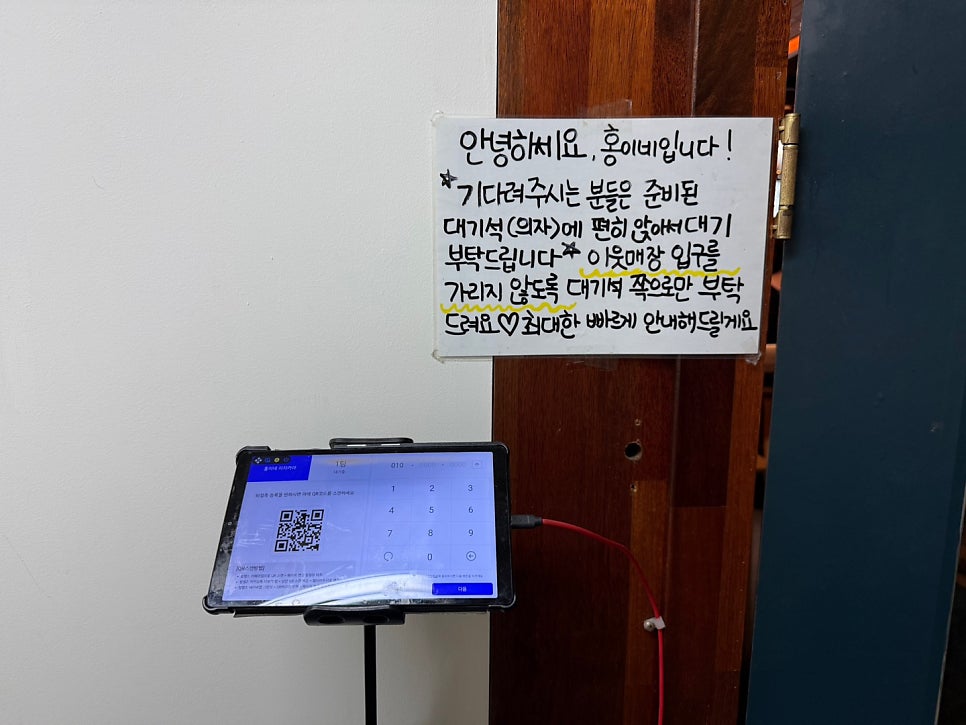 안녕하세요, 홍이네입니다!
*기다려주시는 분들은 준비된
대기석(의자)에 편히 앉아서 대기
부탁드립니다* 이웃매장 입구를
가리지 않도록 대기석 쪽으로만 부탁
드려요♡ 최대한 빠르게 안내해드릴게요
홍이네 이자카야
1팀
010 - 0000 - 0000
1 2 3
4 5 6
7 8 9
0
다음